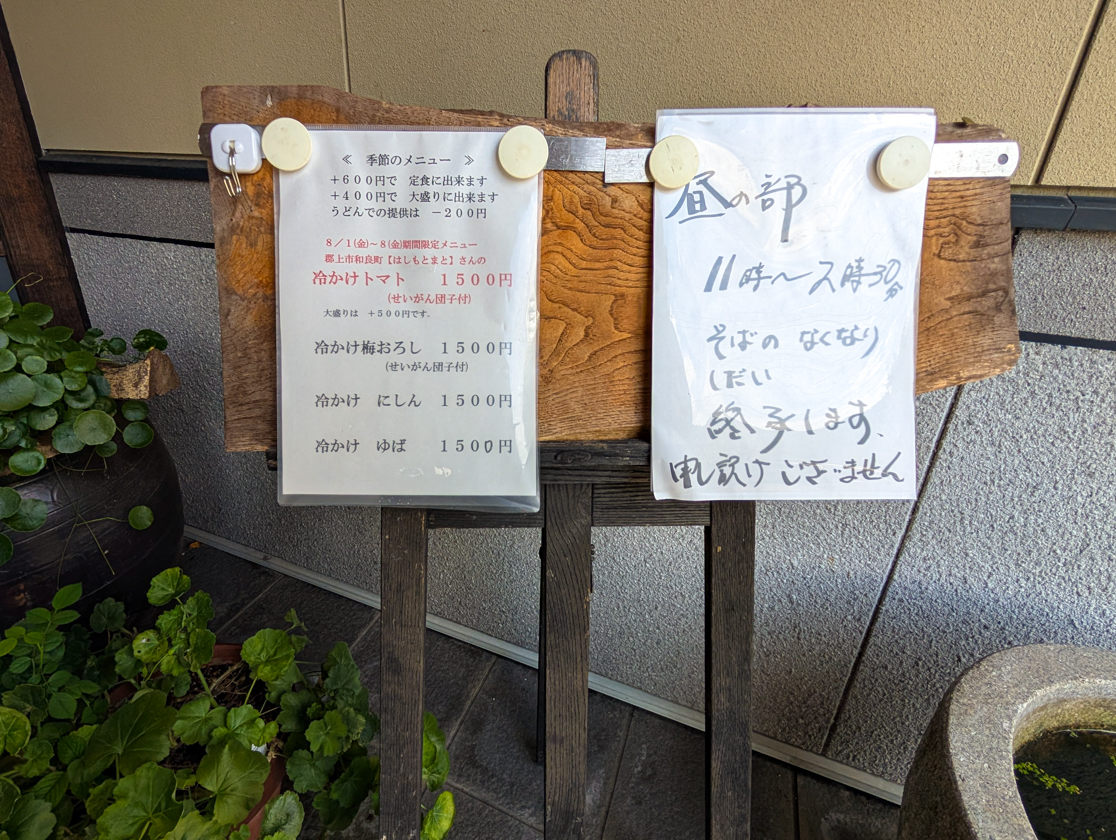 ≪ 季節のメニュー ≫
+600円で 定食に出来ます
+400円で 大盛りに出来ます
うどんでの提供は -200円
8/1(金)~8(金)期間限定メニュー
郡上市和良町【はしもとまと】さんの
冷かけトマト 1500円
(せいがん団子付)
大盛りは +500円です。
冷かけ梅おろし 1500円
(せいがん団子付)
冷かけ にしん 1500円
冷かけ ゆば 1500円
昼の部
11時〜2時30分
そばの なくなり
しだい
終了します、
申し訳け ございません